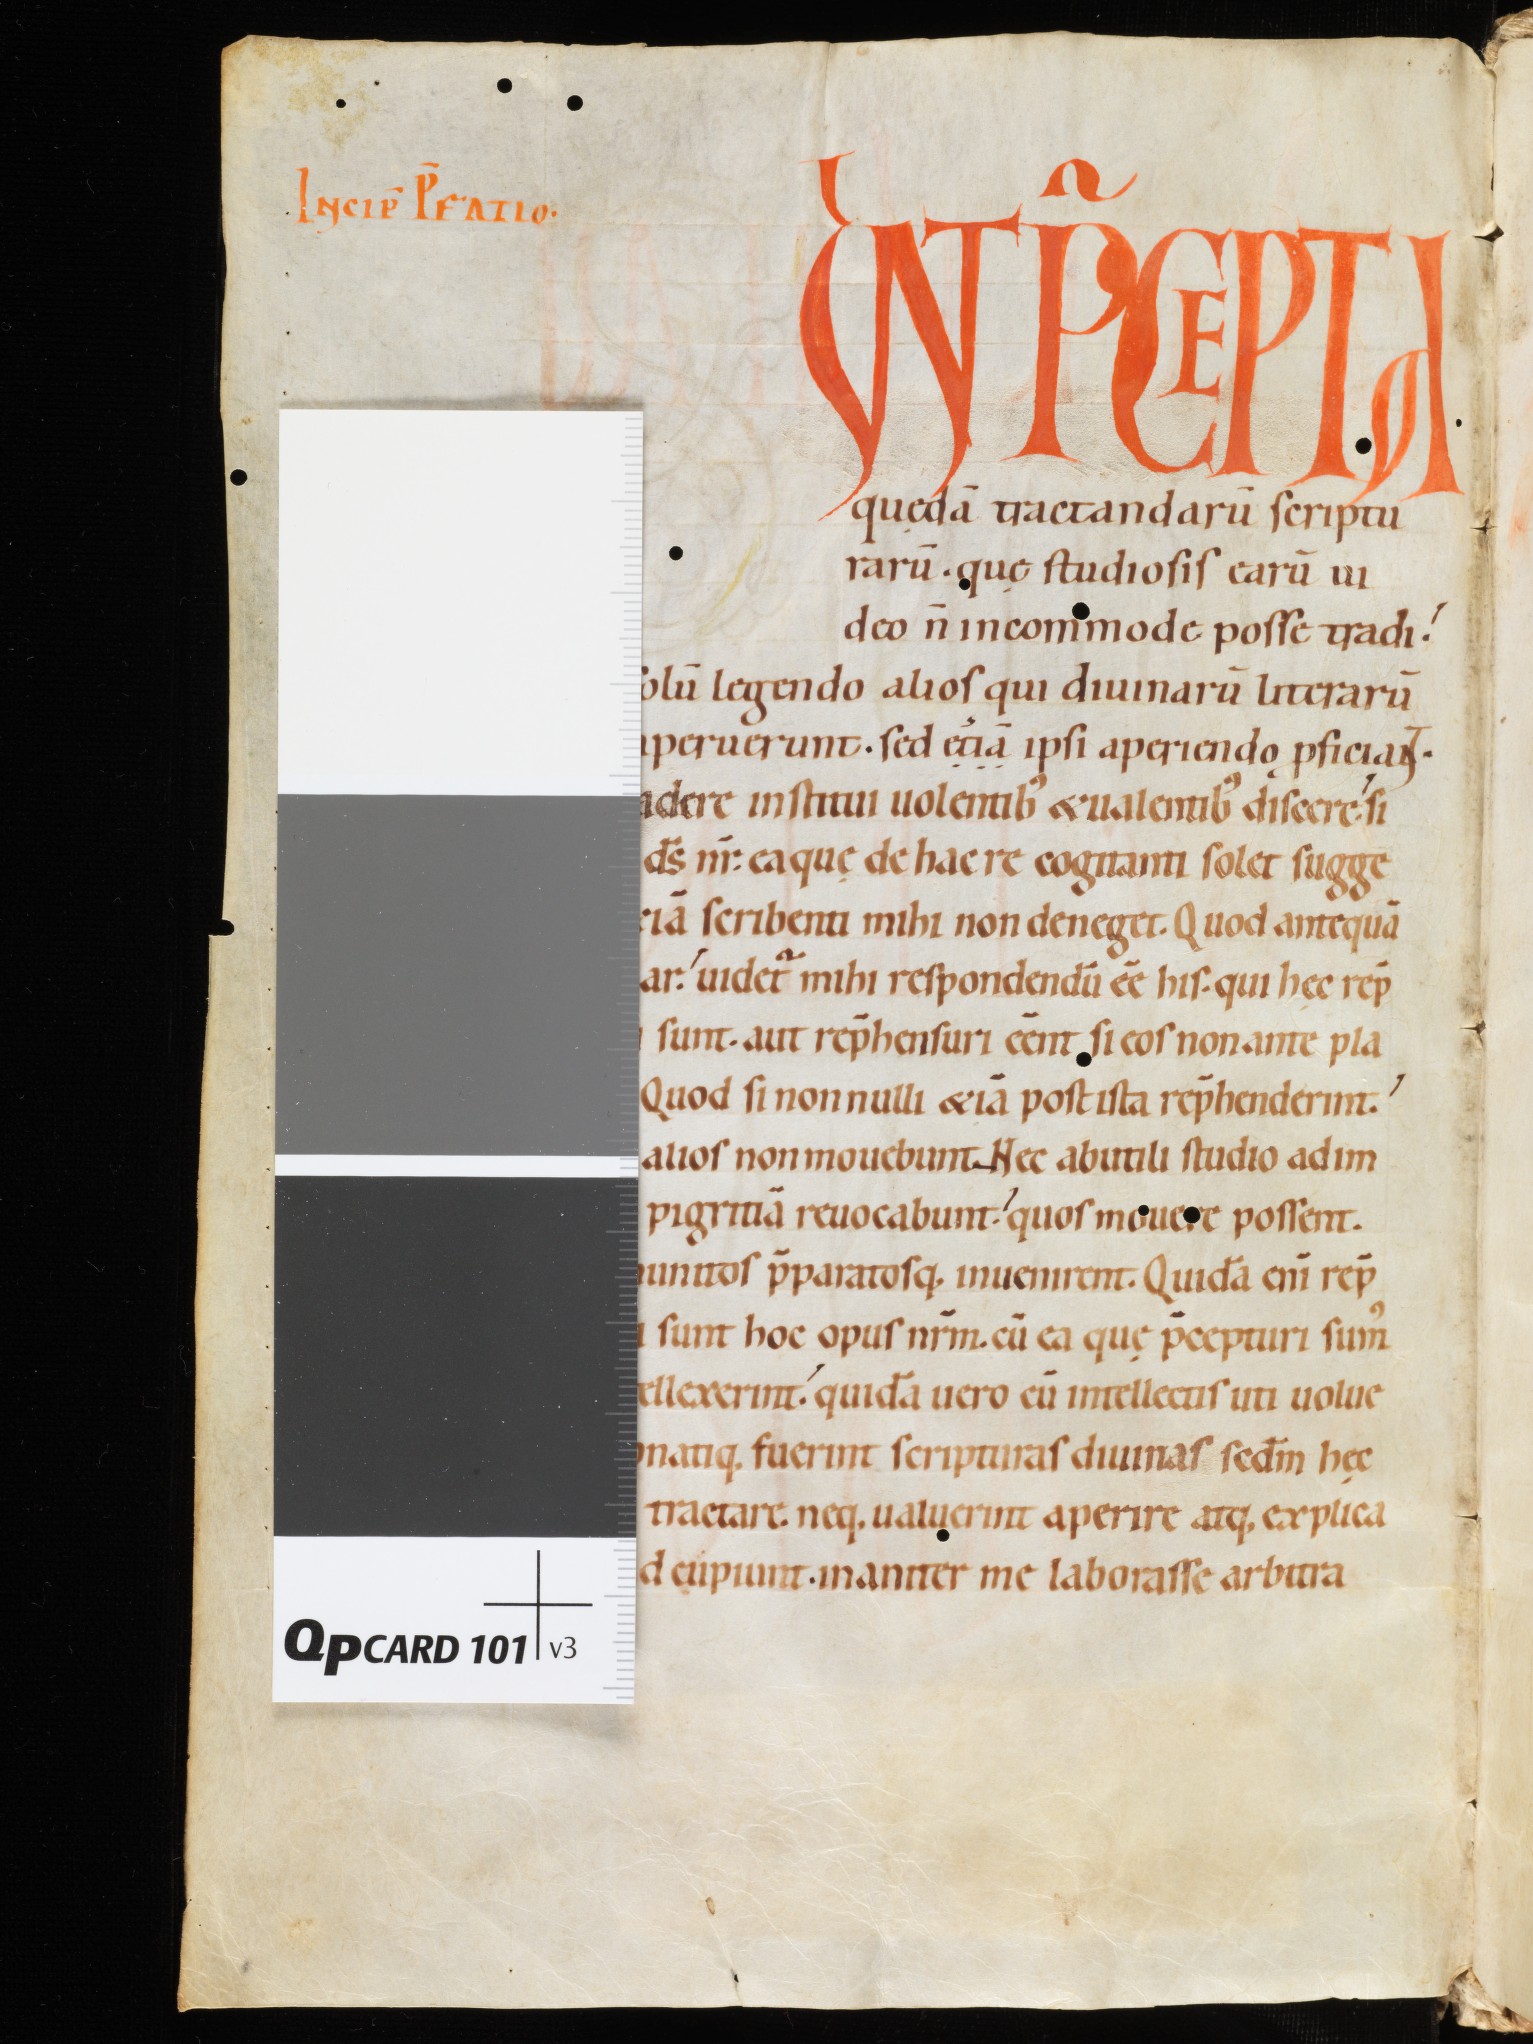 Incip̄ P̄fatio.
SUNT P̃CEPTA
quędā tractandarū scriptu
rarū. quę studiosis earū ui
deo n̄ incommode posse tradi.
solū legendo alios qui diuinarū literarū
aperuerunt. sed etiā ipsi aperiendo ꝓficiant.
adere institui uolentibꝰ &ualentibꝰ discere. si
d̄s nr̄. ea quę de hac re cogitanti solet sugge
tiā scribenti mihi non deneget. Quod antequā
ar. uidet᷑ mihi respondendū ēē his. qui hęc rep̄
sunt. aut rep̄hensuri ēēnt si eos non ante pla
Quod si non nulli &iā post ista rep̄henderint.
alios non mouebunt. Nec ab utili studio ad im
pigritiā reuocabunt. quos mouere possent.
unitos p̄paratosq, inuenirent. Quidā eni rep̄
sunt hoc opus nr̄m. cū ea quę p̄cepturi sumꝰ
ellexerint. quidā uero cū intellectis uti uolue
natiq, fuerint scripturas diuinas sc̄dm hęc
tractare. neq, ualuerint aperire atq, explica
d cupiunt. inaniter me laborasse arbitra
QpCARD 101 v3